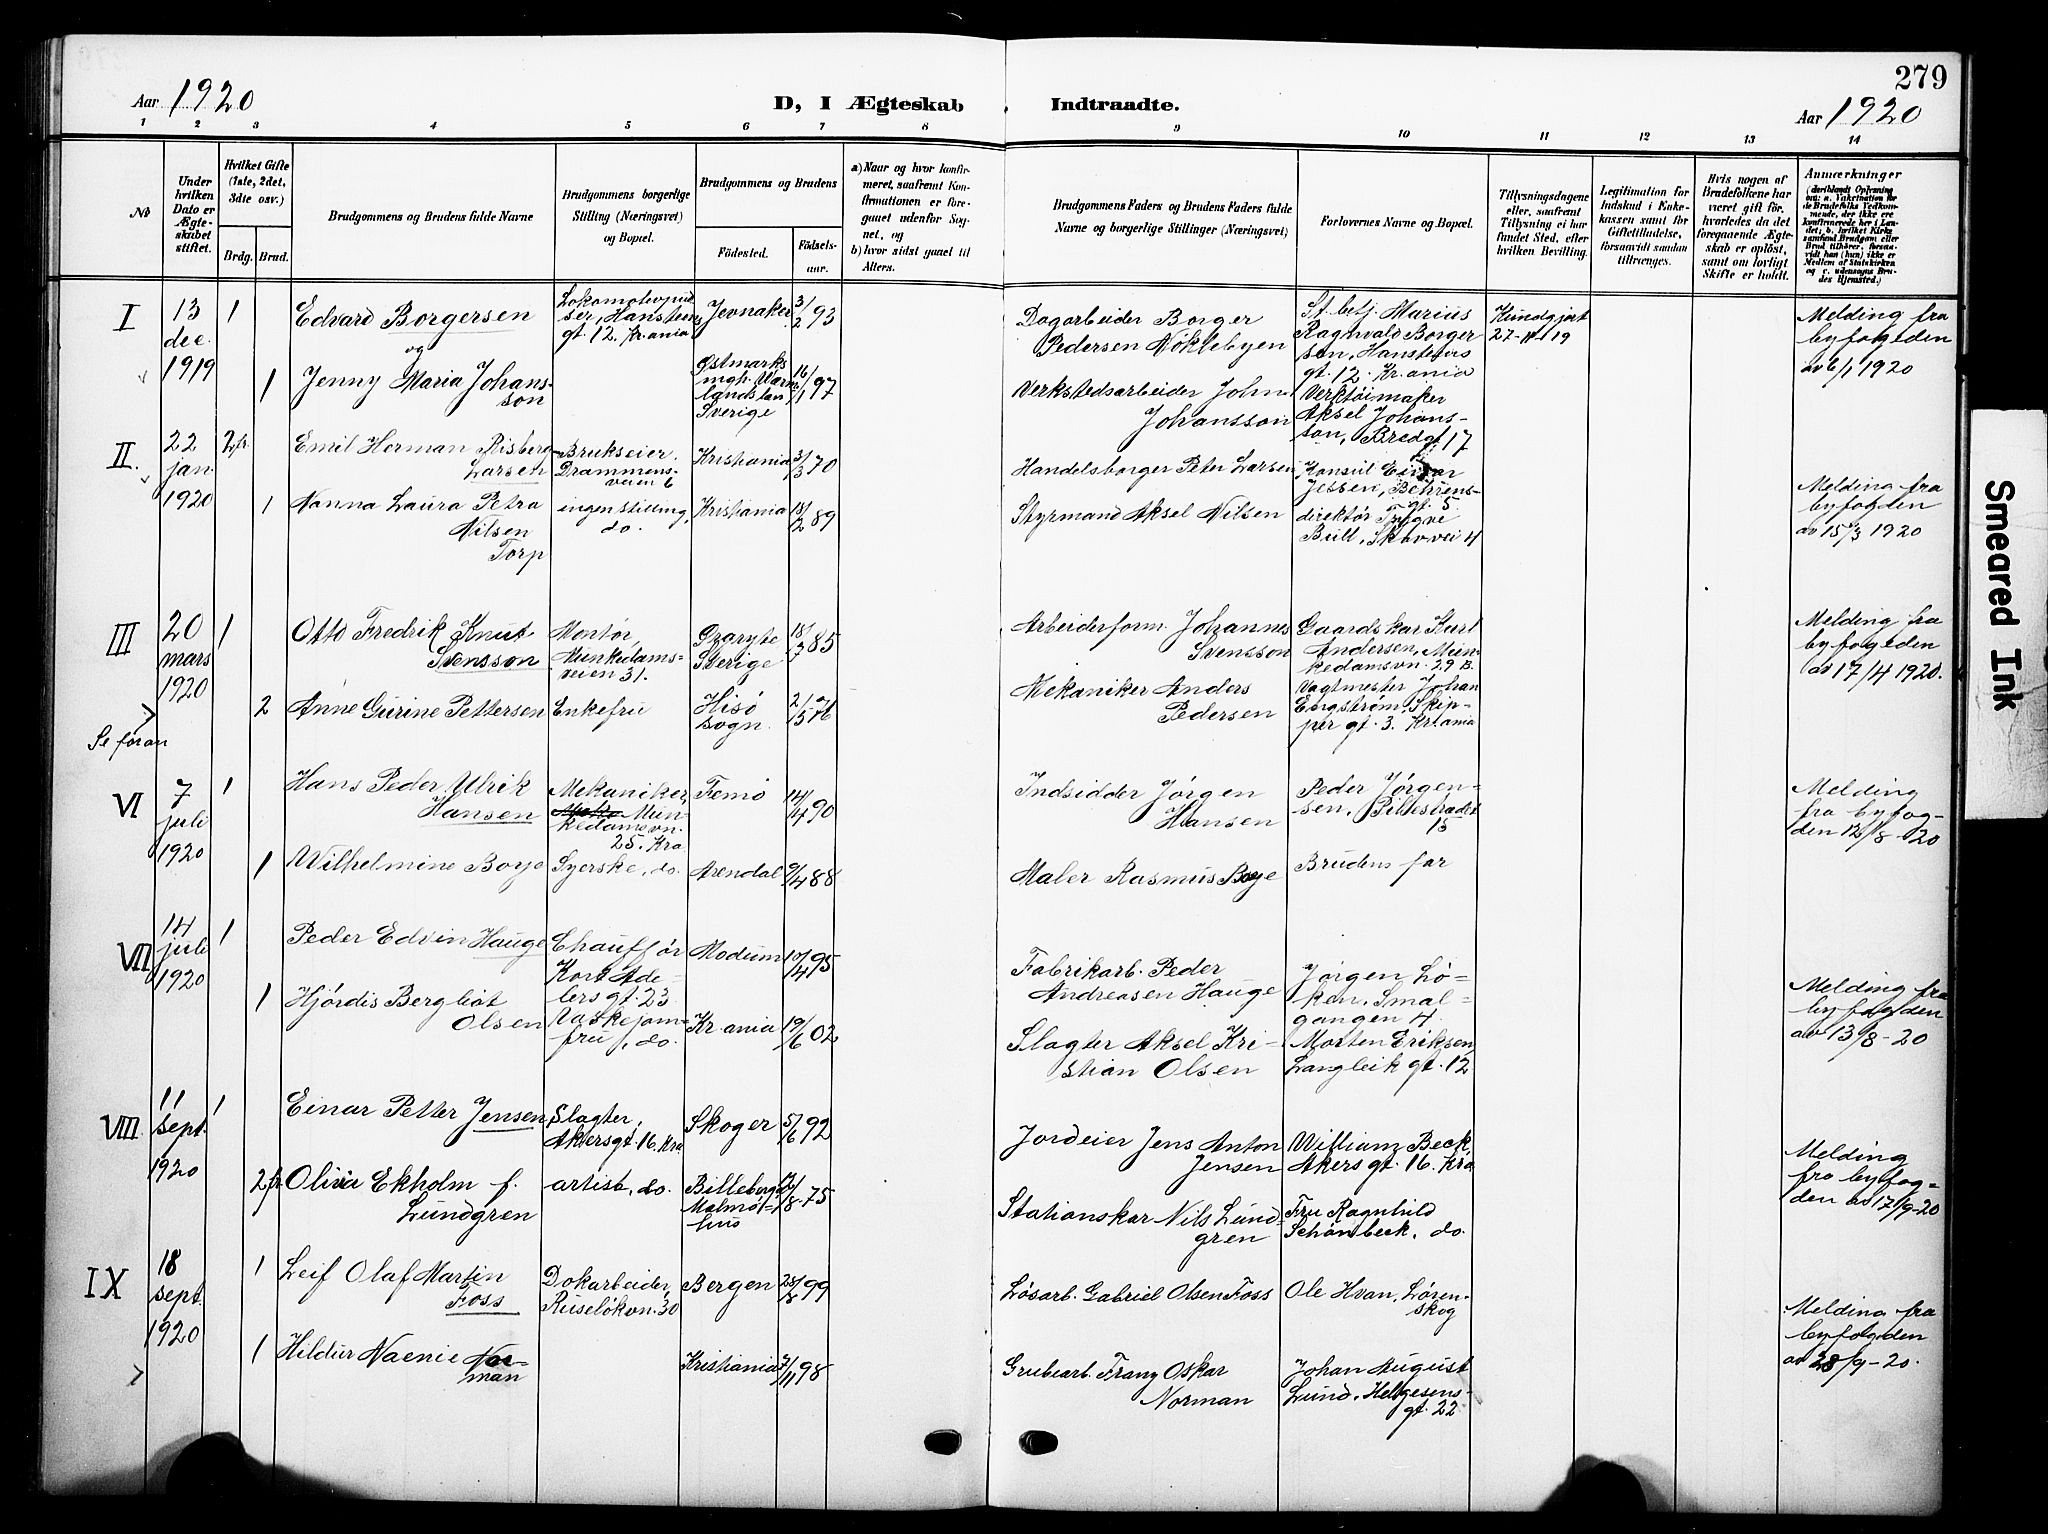 279
Aar 1920
D, I Ægteskab Indtraadte.
Aar 1920
1 2 3 4 5 6 7 8 9 10 11 12 13 14
No
Under hvilken Dato er Ægteskabet stiftet.
Hvilket Gifte (1ste, 2det, 3dte osv.)
Brdg. Brud.
Brudgommens og Brudens fulde Navne
Brudgommens borgerlige Stilling (Næringsvei) og Bopæl.
Brudgommens og Brudens
Födested.
Födselsaar.
a) Naar og hvor konfirmeret, saafremt Konfirmationen er foregaaet udenfor Sognet, og
b) hvor sidst gaaet til Alters.
Brudgommens Faders og Brudens Faders fulde Navne og borgerlige Stillinger (Næringsvei)
Forlovernes Navne og Bopæl.
Tillysningsdagene eller, saafremt Tillysning ei har fundet Sted, efter hvilken Bevilling.
Legitimation for Indskud i Enkekassen samt for Giftetilladelse, forsaavidt saadan tiltrænges.
Hvis nogen af Brudefolkene har været gift för, hvorledes da det foregaaende Ægteskab er oplöst, samt om lovligt Skifte er holdt.
Anmærkninger
I
13
dec.
1919
1
Edvard Borgersen
og
Lokomotivpudser, Hansteens
gt. 12, Kr.ania
Jevnaker
3/2 93
Dagarbeider Borger
Pedersen Nøklebyen
St. betj. Marius
Ragnvald Borgersen, Hansteens
gt. 12. Kr.ania
Kundgjort
27-11-19
Melding fra
byfogeden
av 6/1 1920
1
Jenny Maria Johansson
Østmarks
Sverige
16/1 97
Verkstedsarbeider John
Johansson
Verktøimaker
Aksel Johansson, Bredgt. 17
II
22
jan.
1920
2 fr.
Emil Herman Risberg
Larsen
Brukseier,
Drammensveien 6
Kristiania
3/3 70
Handelsborger Peter Larsen
Konsul Einar
Jessen, Behrensgt. 5
Melding fra
byfogden
av 15/3 1920
1
Nanna Laura Petra
Nilsen
Torp
ingen stilling,
do.
Kristiania
18/2 89
Styrmand Aksel Nilsen
direktør Trygve
Bull, Skovvei 4
III
20
mars
1920
1
Otto Fredrik Knut
Svensson
Montør,
Munkedamsveien 31.
Sverige
18/7 85
Arbeiderform. Johannes
Svensson
Gaardskar Karl
Andersen, Munkedamsvn. 29 B.
Melding fra
byfogeden
av 17/4 1920.
2
Anne Gurine Pettersen
Enkefru
Hisø
sogn.
2/5 76
Mekaniker Anders
Pedersen
Vagtmester Johan
Engstrøm, Skippergt. 3. Kr.ania
Se foran
VI
7
juli
1920
1
Hans Peder Ulrik
Hansen
Mekaniker,
Munkedamsvn.
25. Kra
Femø
14/4 90
Indsidder Jørgen
Hansen
Peder Jørgensen, Pilestrædet
15
Melding
fra byfogden 12/8 - 20
1
Wilhelmine Borje
Syerske, do.
Arendal
9/4 88
Maler Rasmus Boye
Brudens far
VII
14
juli
1920
1
Peder Edvin Hauge
Chauffør
Kort Adelersgt. 23
Modum
10/4 95
Fabrikarb. Peder
Andreasen Hauge
Jørgen Løken, Smalgangen 4
Melding fra
byfogden
av 13/8 - 20
1
Hjørdis Bergliot
Olsen
Vaskejomfru, do.
Kr.ania
19/6 02
Slagter Aksel Kristian Olsen
Morten Eriksen,
Langleik gt. 12
VIII
11
sept.
1920
1
Einar Petter Jensen
Slagter,
Akersgt. 16. Kra
Skoger
5/6 92
Jordeier Jens Anton
Jensen
William Beck,
Akersgt. 16. Kra
Melding
fra byfogden av 17/9-20
2 fr.
Olivia Ekholm f.
Lundgren
artist, do.
Billeberga
Malmøhus
75
Stationskar Nils Lundgren
Fru Ragnhild
Schönbeck, do.
IX
18
sept.
1920
1
Leif Olaf Martin
Foss
Dokarbeider,
Ruseløkvn. 30
Bergen
28/8 99
Løsarb. Gabriel Olsen Foss
Ole Hvan, Lørenskog
Melding fra
byfogden
av 28/9 - 20.
1
Hildur Naenie Norman
Kristiania
7/11 98
Grubearb. Franz Oskar
Norman
Johan August
Lund, Helgesensgt. 22
Smeared Ink